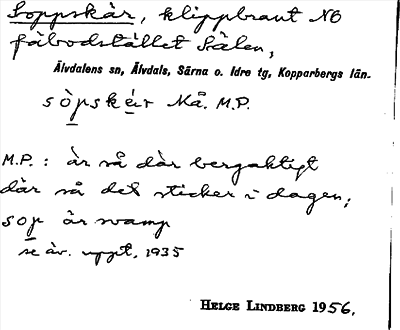 Soppskär, klippbrant NO
fäbodstället Sälen,
Älvdalens sn, Älvdals, Särna o. Idre tg, Kopparbergs län.
sòpskär Må. M.P.
M.P.: är så där bergaktigt
där så det sticker i dagen;
sop är svamp
se äv. uppt. 1935
HELGE LINDBERG 1956.